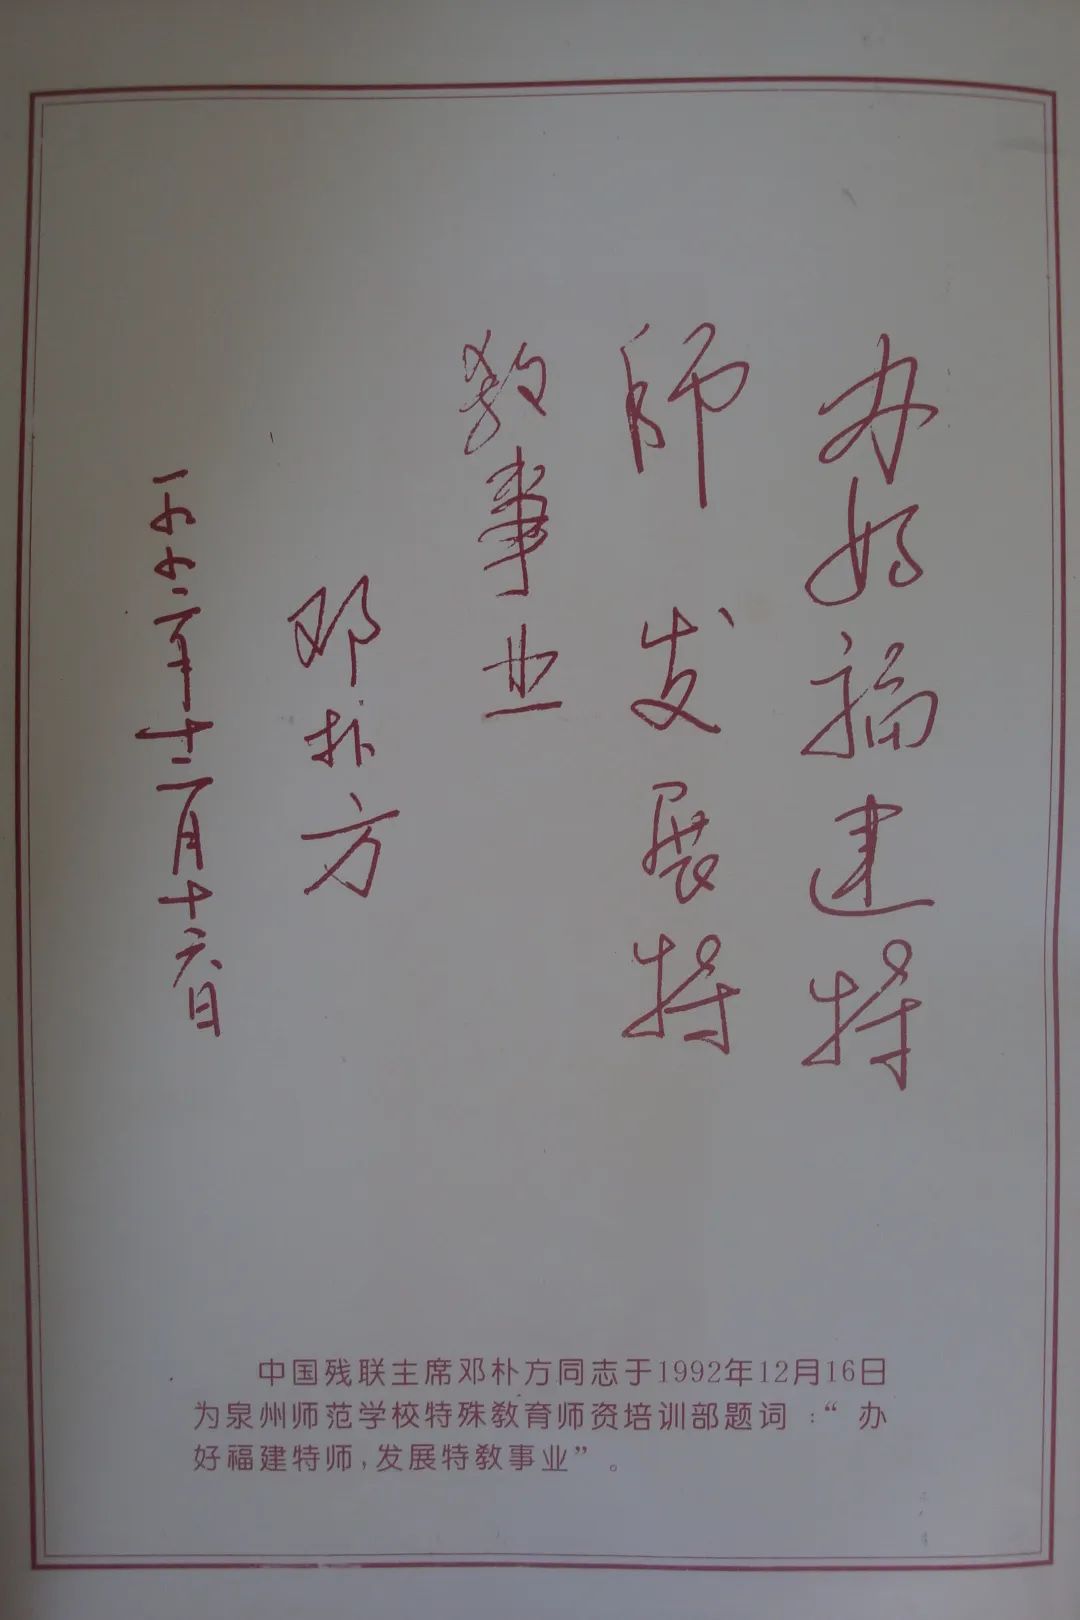 办好福建特
师 发展特
教事业
邓朴方
一九九二年十二月十六日
中国残联主席邓朴方同志于1992年12月16日
为泉州师范学校特殊教育师资培训部题词：“办
好福建特师，发展特教事业”。